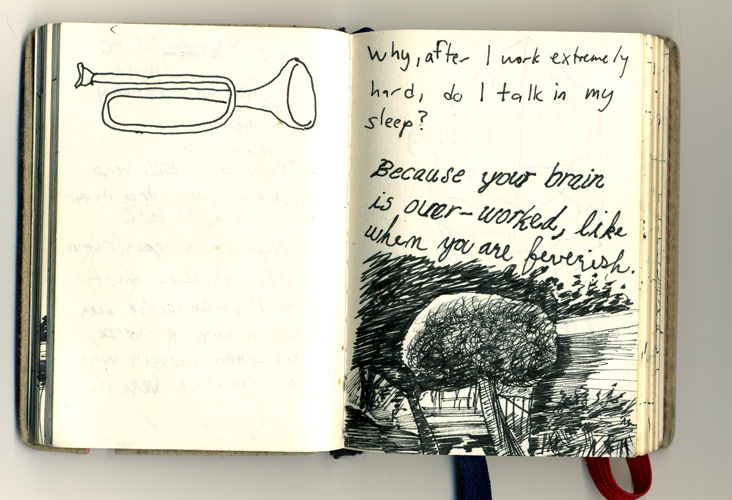 Why, after I work extremely
hard, do I talk in my
sleep?
Because your brain
is over-worked, like
when you are feverish.